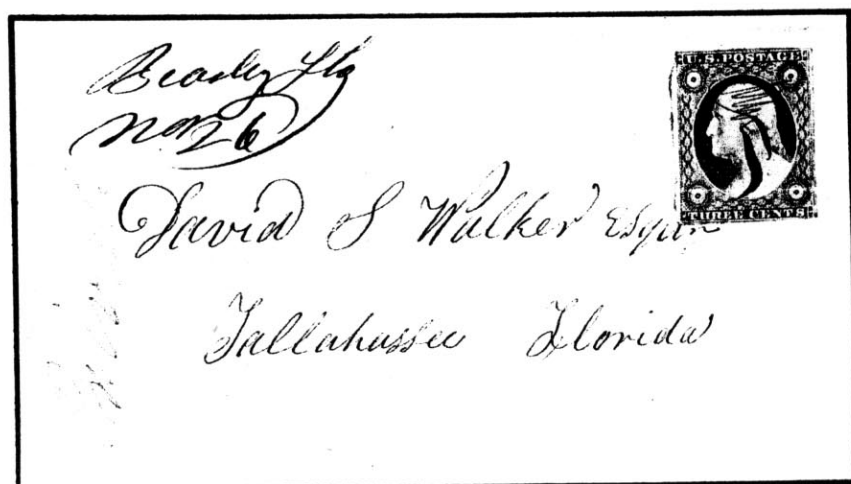 Fla
Nov 26
U.S. POSTAGE
THREE CENTS
David S Walker Esqur
Tallahassee Florida